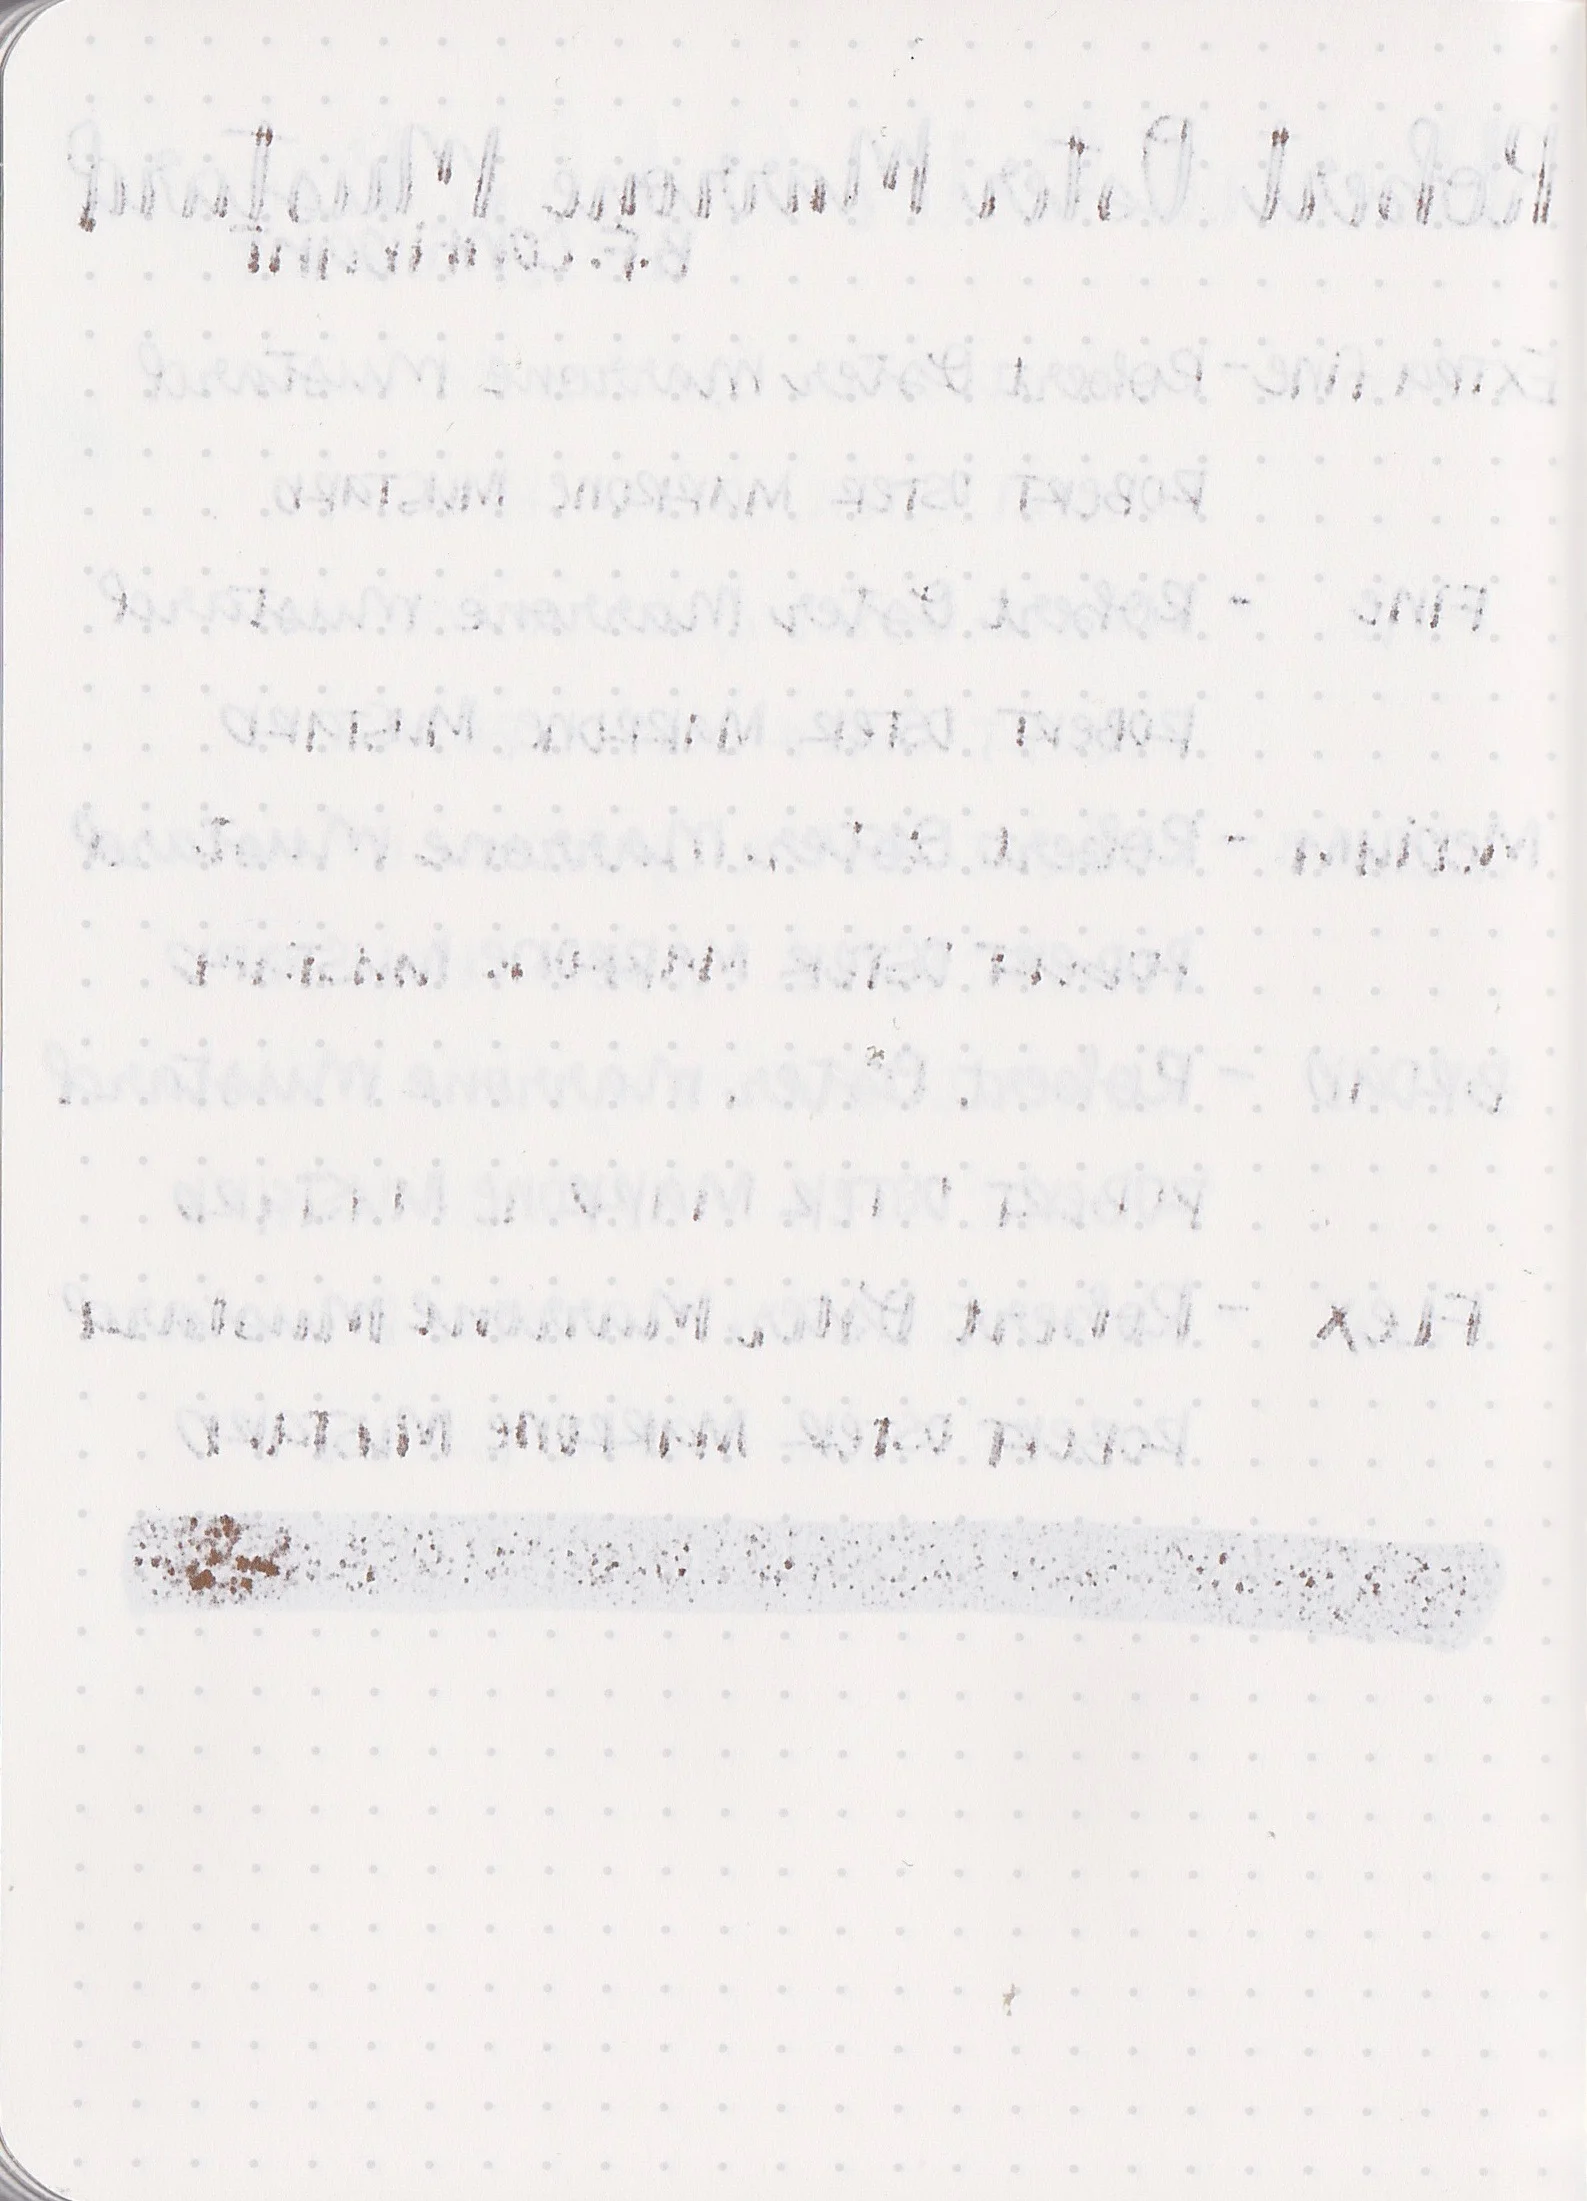 Robert Oster Marrone Mustard
B.F. CONTINENT
EXTRA FINE - Robert Oster Marrone Mustard
ROBERT OSTER MARRONE MUSTARD
FINE - Robert Oster Marrone Mustard
ROBERT OSTER MARRONE MUSTARD
MEDIUM - Robert Oster Marrone Mustard
ROBERT OSTER MARRONE MUSTARD
BROAD - Robert Oster Marrone Mustard
ROBERT OSTER MARRONE MUSTARD
Flex - Robert Oster Marrone Mustard
ROBERT OSTER MARRONE MUSTARD